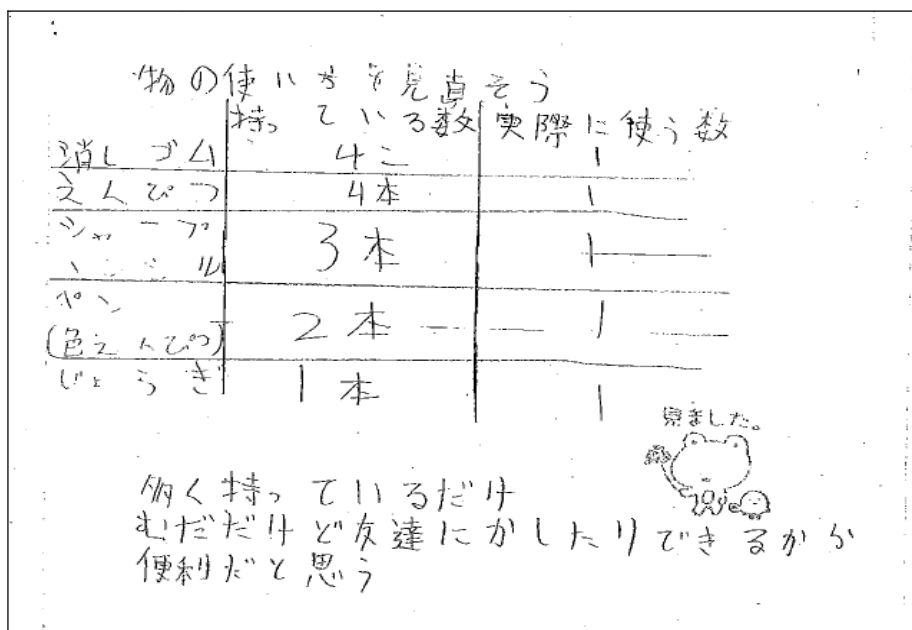 物の使い方を見直そう
持っている数 実際に使う数
消しゴム 4こ 1
えんぴつ 4本 1
シャープペンシル 3本 1
ペン(色えんぴつ) 2本 1
じょうぎ 1本 1
見ました。
多く持っているだけ
むだだけど友達にかしたりできるから
便利だと思う